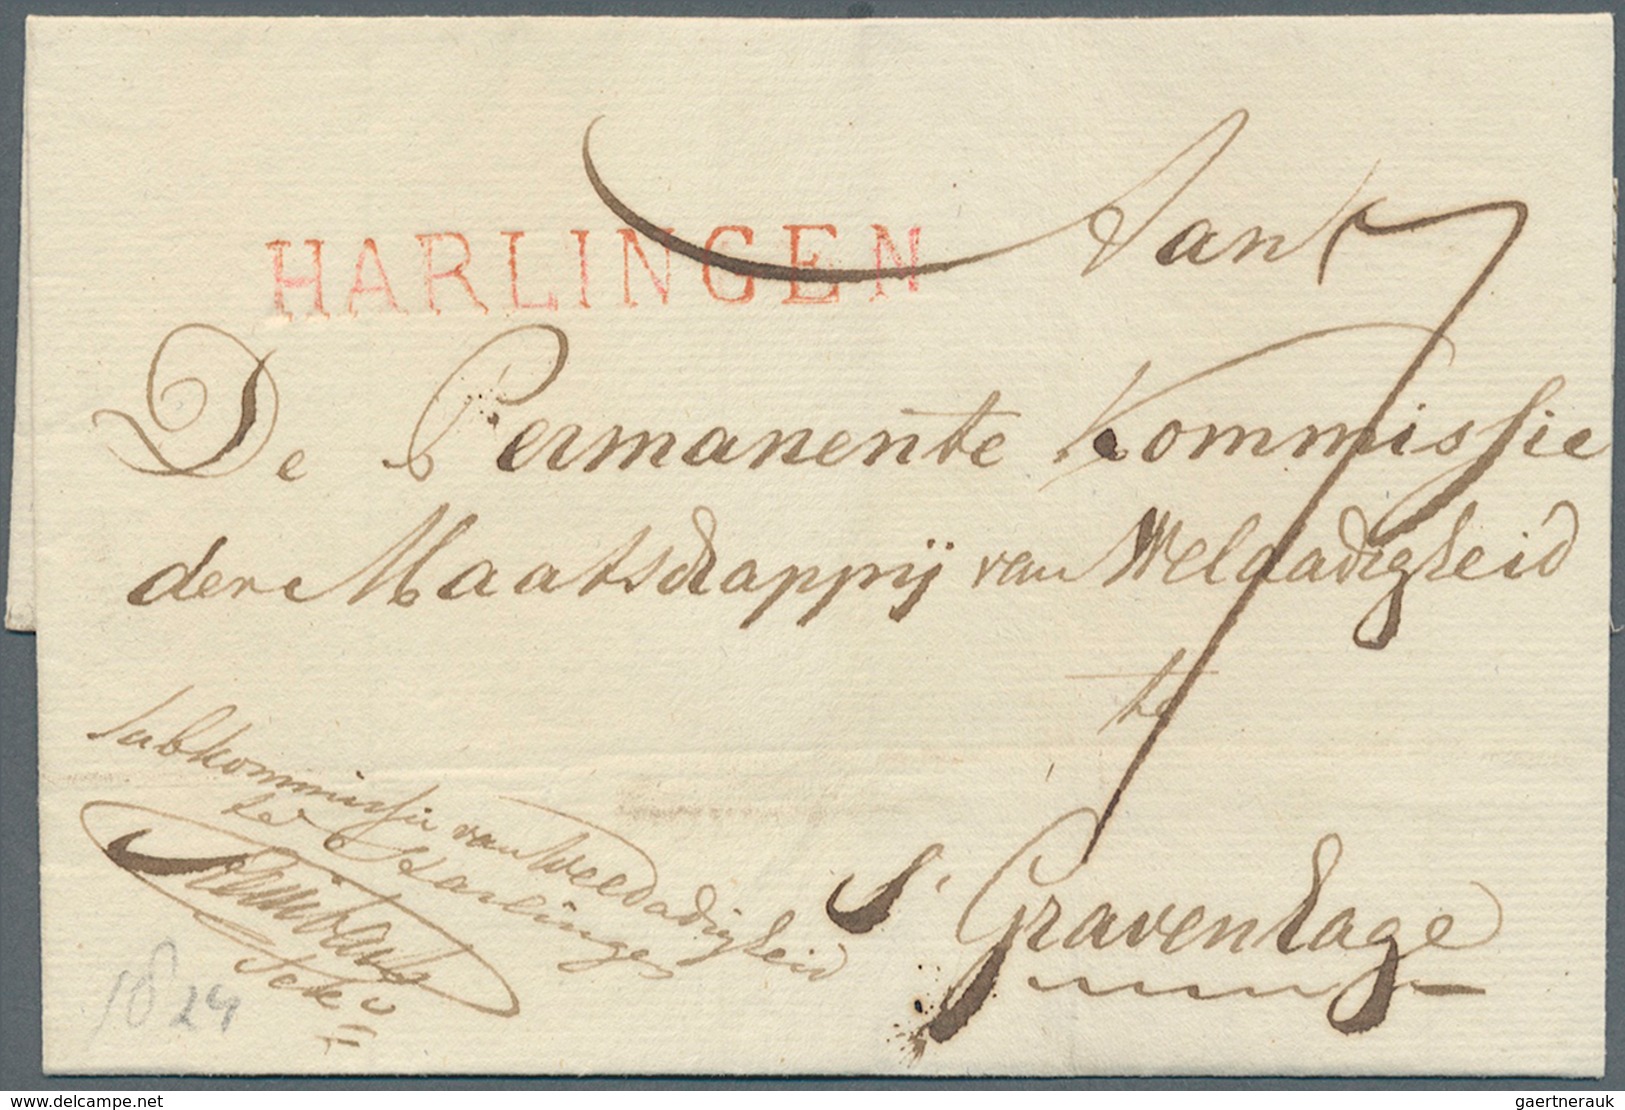 Aan
HARLINGEN
7
De Permanente Kommissie
der Maatschappij van Weldadigheid
te
s' Gravenhage
Subkommissie van Weldadigheid
te Harlingen
Sekr
1824
www.delcampe.net
gaertnerauk